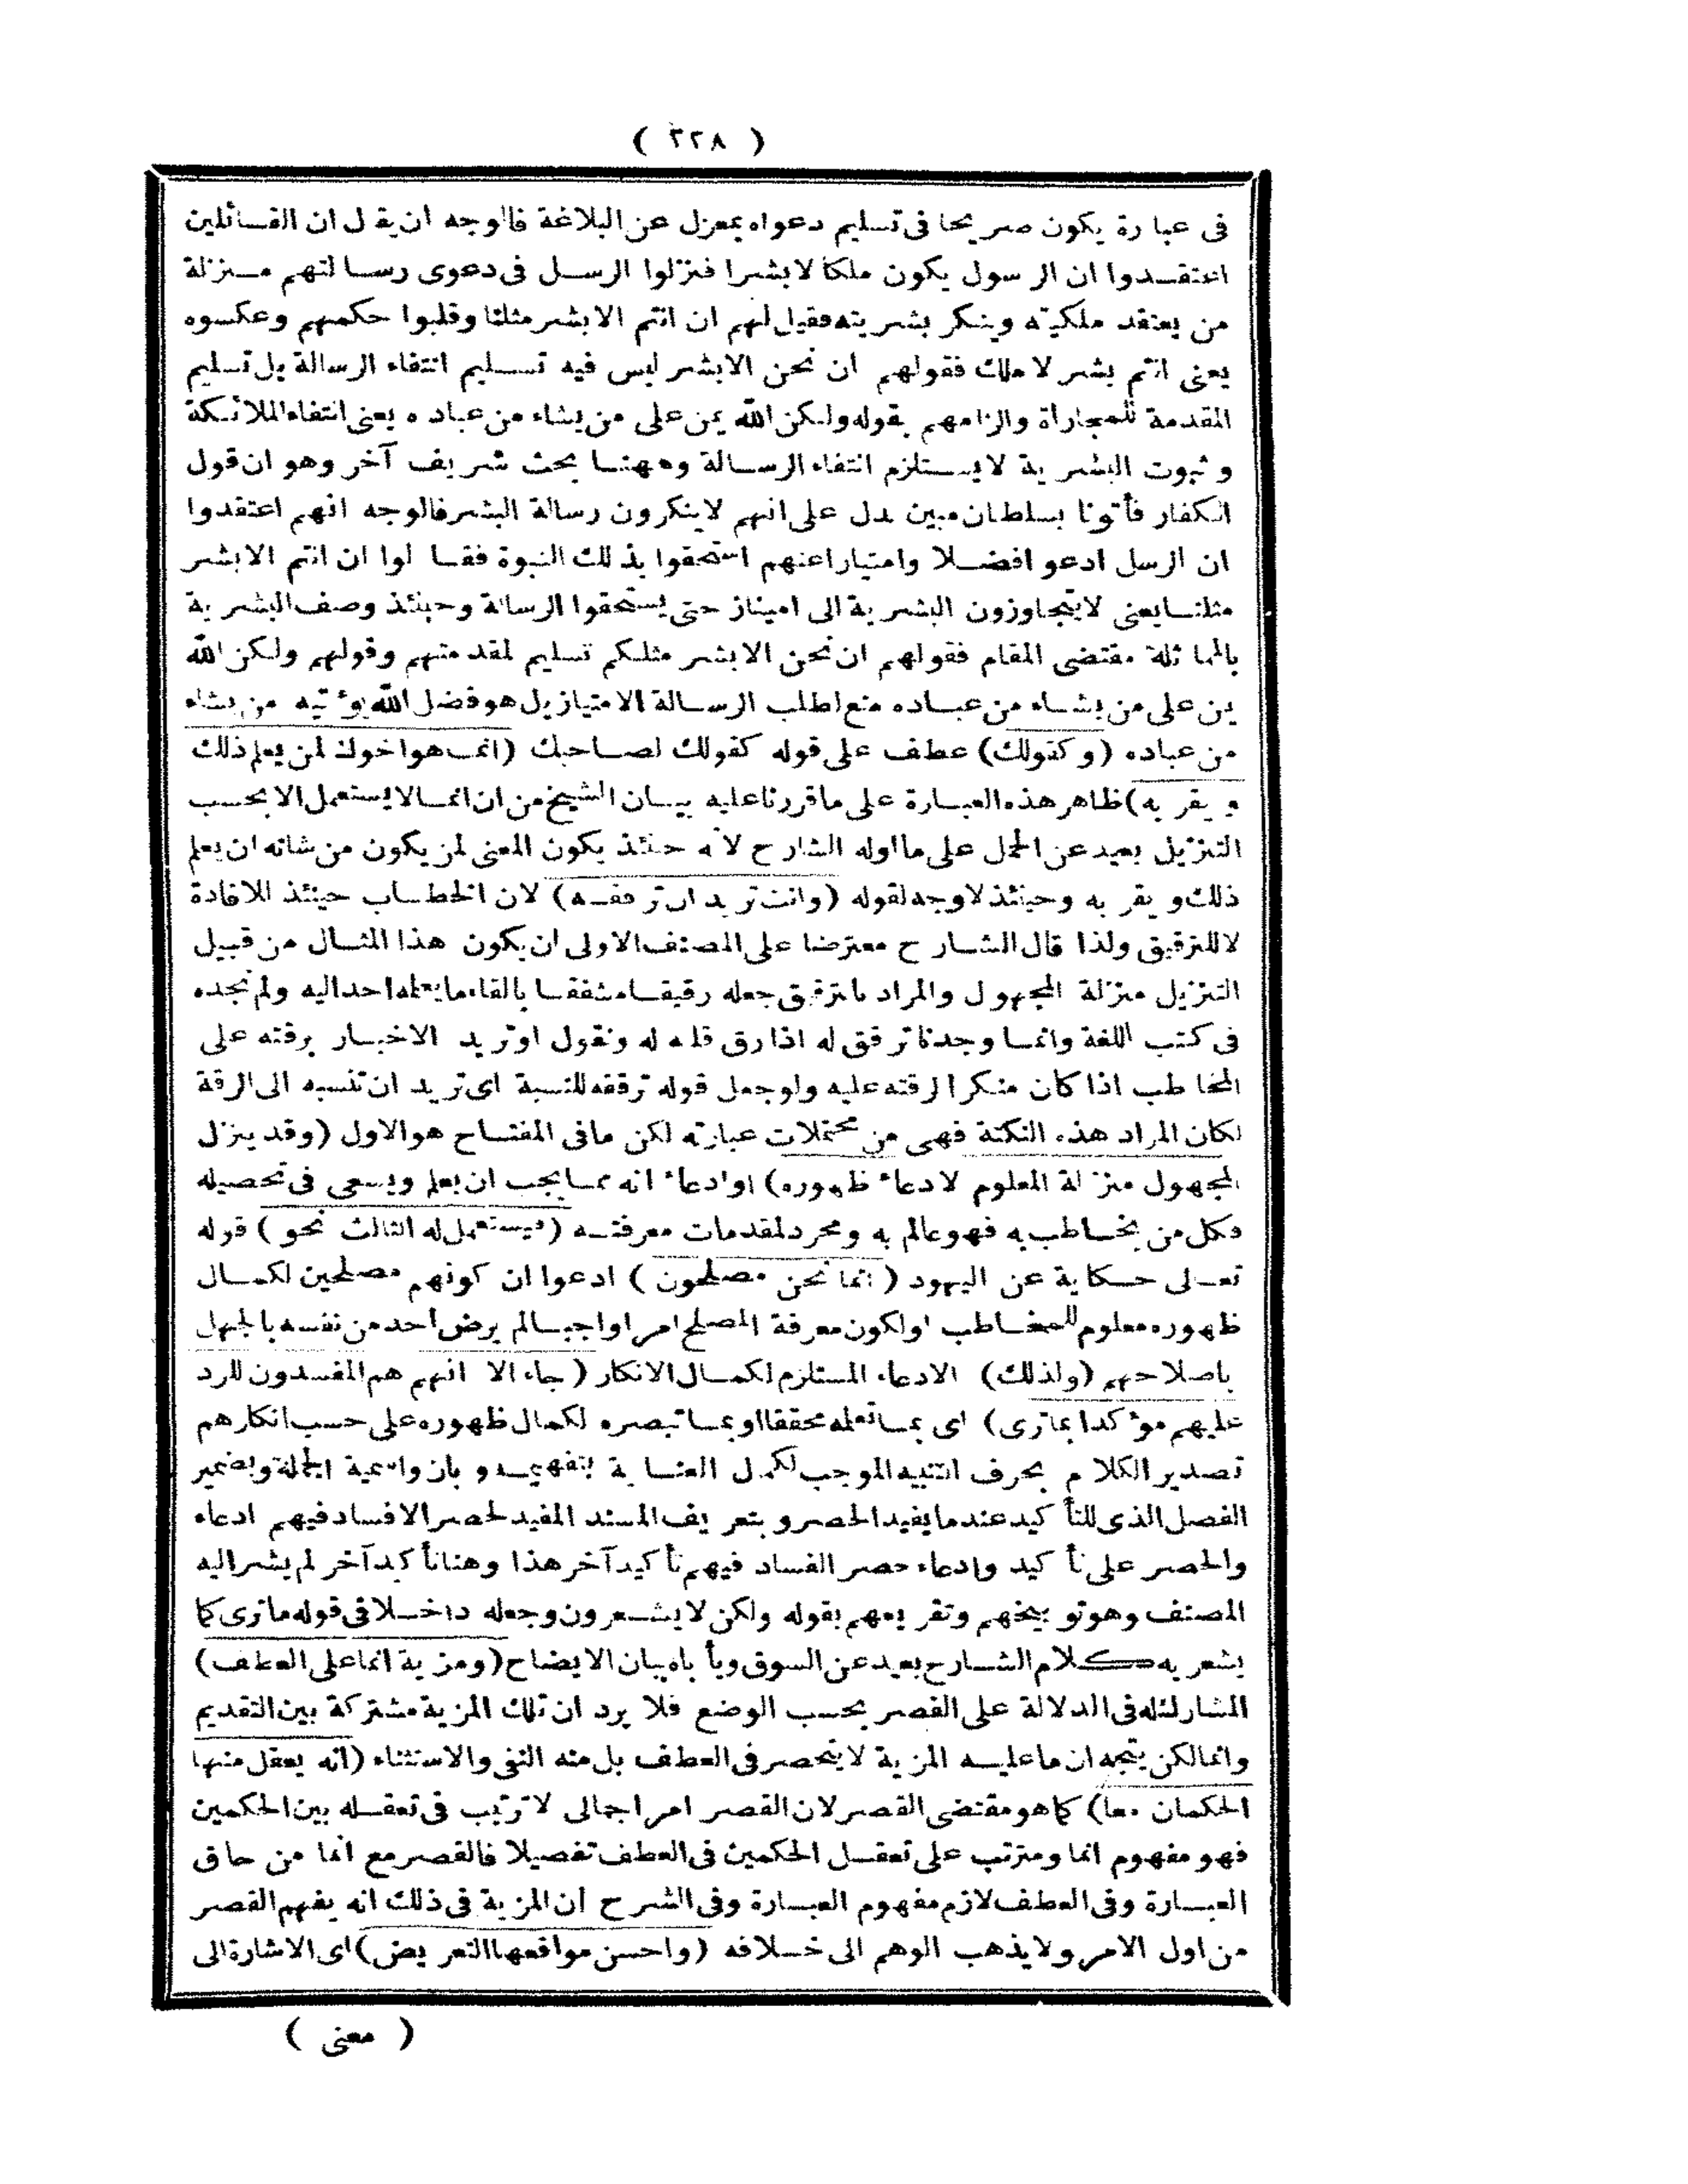 ( ٢٢٨ )
فى عبارة يكون صريحا فى تسليم دعواه بمعزل عن البلاغة فالوجه ان يقال ان القائلين
اعتقدوا ان الرسول يكون ملكا لابشرا فنزلوا الرسل فى دعوى رسالتهم منزلة
من يعتقد ملكيته وينكر بشريته فقيل لهم ان انتم الابشر مثلنا وقلبوا حكمهم وعكسوه
يعنى انتم بشر لا ملك فقولهم ان نحن الابشر ليس فيه تسليم انتفاء الرسالة بل تسليم
المقدمة للمجاراة والزامهم بقوله ولكن الله يمن على من يشاء من عباده يعنى انتفاء الملائكة
وثبوت البشرية لايستلزم انتفاء الرسالة وههنا بحث شريف آخر وهو ان قول
الكفار فأتونا بسلطان مبين يدل على انهم لاينكرون رسالة البشر فالوجه انهم اعتقدوا
ان الرسل ادعوا فضلا وامتيازا عنهم استحقوا بذلك النبوة فقالوا ان انتم الابشر
مثلنا يعنى لايتجاوزون البشرية الى امتياز حتى يستحقوا الرسالة وحينئذ وصف البشرية
بالمماثلة مقتضى المقام فقولهم ان نحن الابشر مثلكم تسليم لمقدمتهم وقولهم ولكن الله
يمن على من يشاء من عباده منع لطلب الرسالة الامتياز بل هو فضل الله يؤتيه من يشاء
من عباده (وكقولك) عطف على قوله كقولك لصاحبك (انما هو اخوك لمن يعلم ذلك
ويقر به) ظاهر هذه العبارة على ما قررنا عليه بيان الشيخ من ان انما لايستعمل الا بحسب
التنزيل بعيد عن الحمل على ما اوله الشارح لانه حينئذ يكون المعنى لمن يكون من شانه ان يعلم
ذلك ويقر به وحينئذ لاوجه لقوله (وانت تريد ان ترققه) لان الخطاب حينئذ للافادة
لا للترقيق ولذا قال الشارح معترضا على المصنف الاولى ان يكون هذا المثال من قبيل
التنزيل منزلة المجهول والمراد بالترقيق جعله رقيقا مشفقا بالقاء ما يعلمه احد اليه ولم نجده
فى كتب اللغة وانما وجدنا ترقق له اذا رق قلبه له ونقول او تريد الاخبار برقته على
المخاطب اذا كان منكرا لرقته عليه ولو جعل قوله ترققه للنسبة اى تريد ان تنسبه الى الرقة
لكان المراد هذه النكتة فهى من محتملات عبارته لكن مافى المفتاح هو الاول (وقد ينزل
المجهول منزلة المعلوم لادعاء ظهوره) او ادعاء انه مما يجب ان يعلم ويسعى فى تحصيله
فكل من يخاطب به فهو عالم به ومحرد لمقدمات معرفته (فيستعمل له الثالث نحو) قوله
تعالى حكاية عن اليهود (انما نحن مصلحون) ادعوا ان كونهم مصلحين لكمال
ظهوره معلوم للمخاطب او لكون معرفة المصلح امرا واجبا لم يرض احد من نفسه بالجهل
باصلاحهم (ولذلك) الادعاء المستلزم لكمال الانكار (جاء الا انهم هم المفسدون للرد
عليهم مؤكدا بماترى) اى بما تعلمه محققا او بما تبصره لكمال ظهوره على حسب انكارهم
تصدير الكلام بحرف التنبيه الموجب لكمال العناية بتفهيمه وبان واسمية الجملة وبضمير
الفصل الذى للتأكيد عند ما يفيد الحصر وبتعريف المسند المفيد لحصر الافساد فيهم ادعاء
والحصر على تأكيد وادعاء حصر الفساد فيهم تأكيد آخر هذا وهنا تأكيد آخر لم يشر اليه
المصنف وهو توبيخهم وتقريعهم بقوله ولكن لايشعرون وجعله داخلا فى قوله ماترى كما
يشعر به كلام الشارح بعيد عن السوق ويأباه بيان الايضاح (ومزية انما على العطف)
المشارك له فى الدلالة على القصر بحسب الوضع فلا يرد ان تلك المزية مشتركة بين التقديم
وانما لكن يتجه ان ما عليه المزية لاينحصر فى العطف بل منه النفى والاستثناء (انه يعقل منها
الحكمان معا) كما هو مقتضى القصر لان القصر امر اجمالى لا ترتيب فى تعقله بين الحكمين
فهو مفهوم انما ومترتب على تعقل الحكمين فى العطف تفصيلا فالقصر مع انما من حاق
العبارة وفى العطف لازم مفهوم العبارة وفى الشرح ان المزية فى ذلك انه يفهم القصر
من اول الامر ولايذهب الوهم الى خلافه (واحسن مواقعها التعريض) اى الاشارة الى
( معنى )